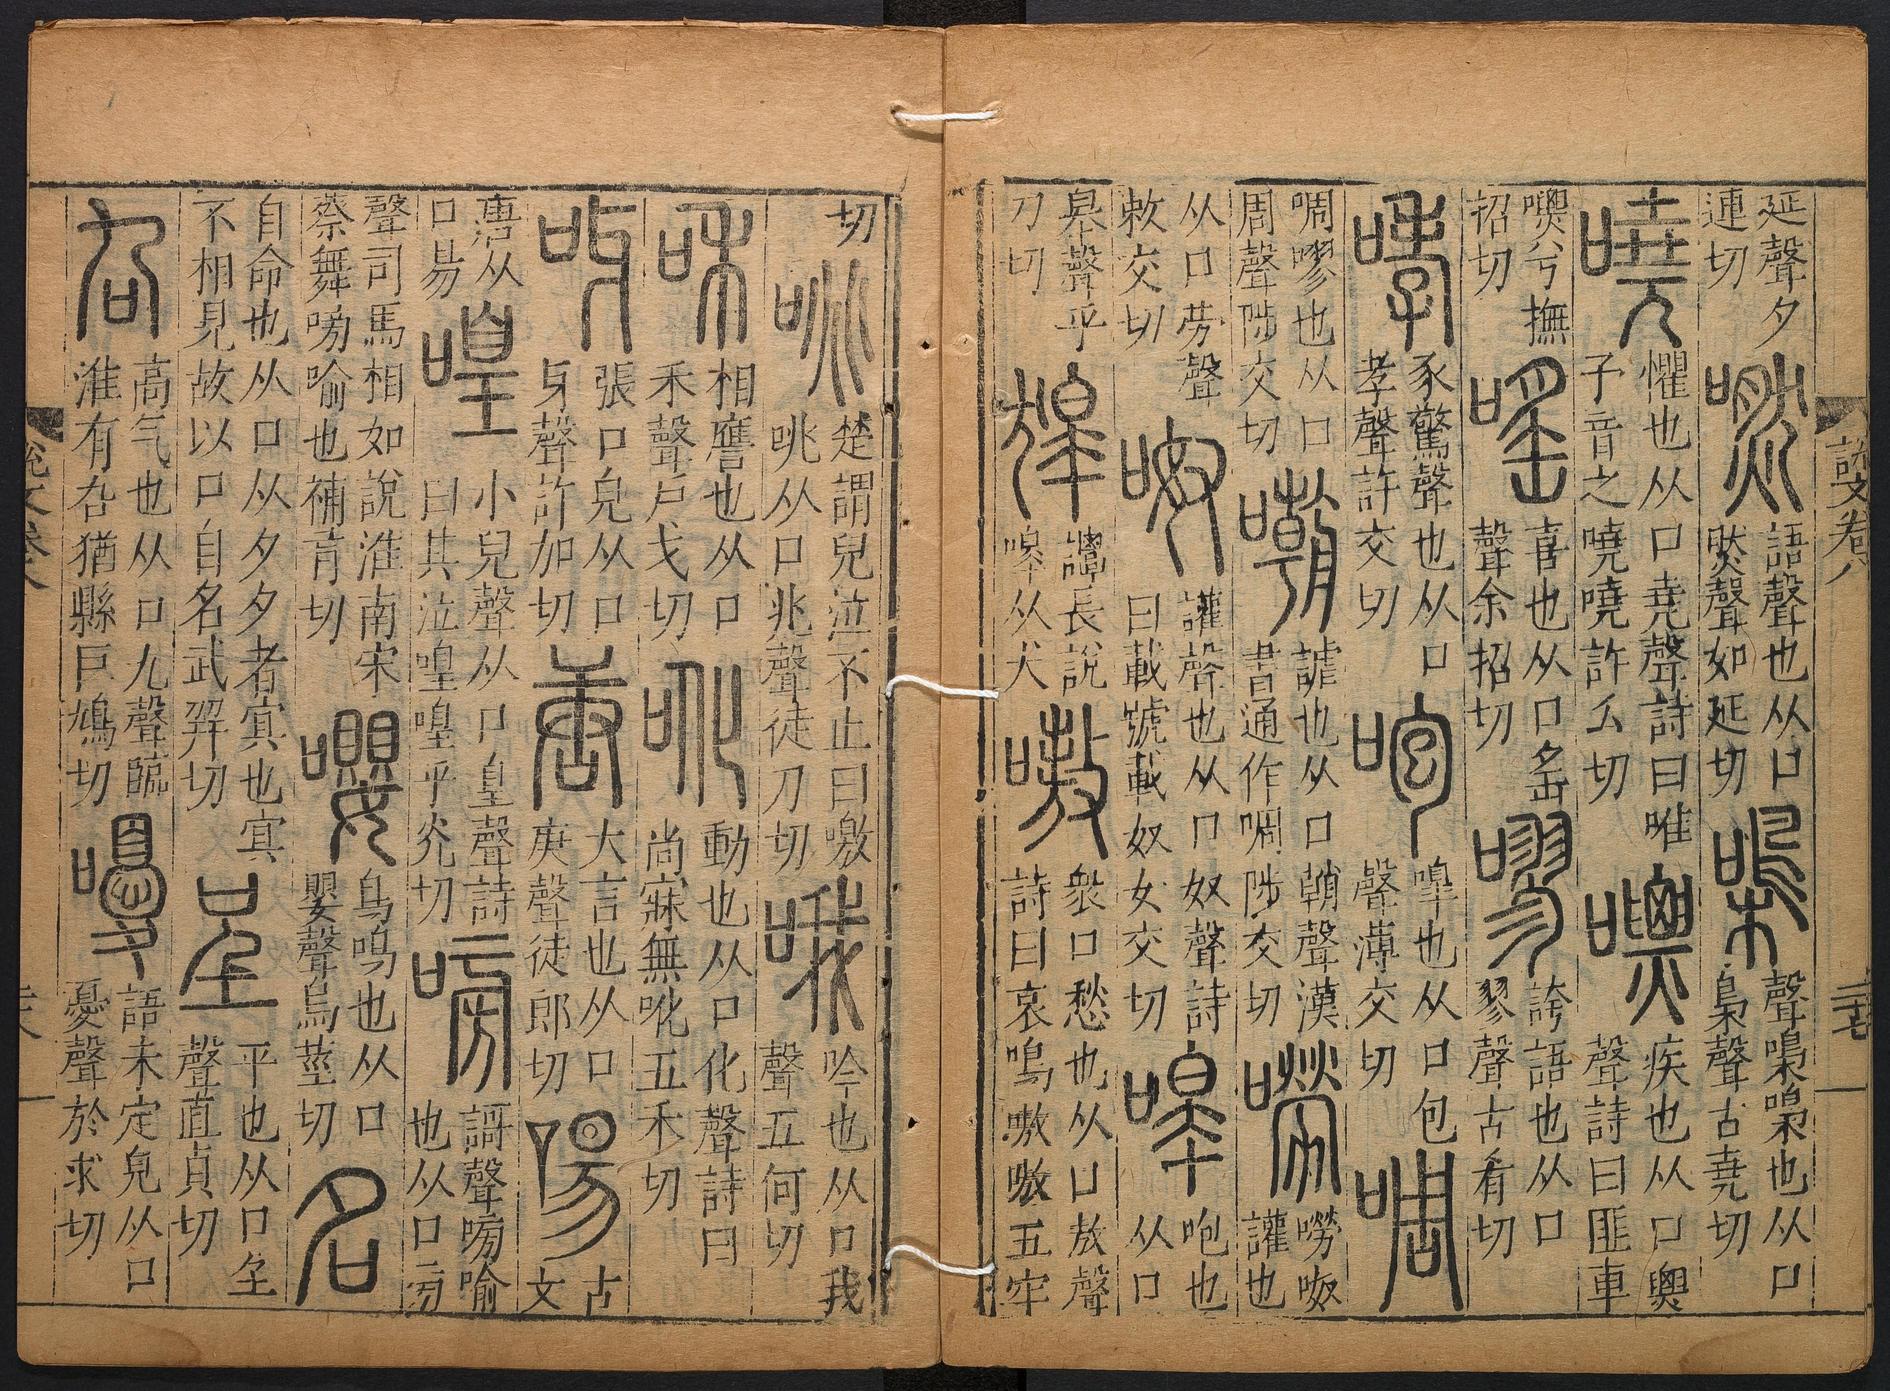 說文卷八
二十七
延聲夕連切 嘫 語聲也从口然聲如延切 嘄 聲嘄嘄也从口梟聲古堯切
嘵 懼也从口堯聲詩曰唯子音之嘵嘵許么切 嘌 疾也从口票聲詩曰匪車
嘌兮撫招切 嗂 喜也从口䍃聲余招切 嘐 誇語也从口翏聲古肴切
哮 豕驚聲也从口孝聲許交切 咆 嗥也从口包聲薄交切 啁
啁嘐也从口周聲陟交切 嘲 謔也从口朝聲漢書通作啁陟交切 嘮 嘮呶讙也
从口勞聲敕交切 呶 讙聲也从口奴聲詩曰載號載奴女交切 嗥 咆也从口
皋聲乎刀切 獆 譚長說嗥从犬 嗷 衆口愁也从口敖聲詩曰哀鳴嗷嗷五牢
切 咷 楚謂兒泣不止曰噭咷从口兆聲徒刀切 哦 吟也从口我聲五何切
和 相譍也从口禾聲戶戈切 吪 動也从口化聲詩曰尚寐無吪五禾切
呀 張口皃从口牙聲許加切 唐 大言也从口庚聲徒郎切 啺 古文
唐从口昜 喤 小兒聲从口皇聲詩曰其泣喤喤乎光切 嗙 謌聲嗙喻也从口㫄
聲司馬相如說淮南宋蔡舞嗙喻也補盲切 嚶 鳥鳴也从口嬰聲烏莖切 名
自命也从口从夕夕者冥也冥不相見故以口自名武幷切 呈 平也从口𡈼聲直貞切
㕤 高气也从口九聲臨淮有㕤猶縣巨鳩切 嚘 語未定皃从口憂聲於求切